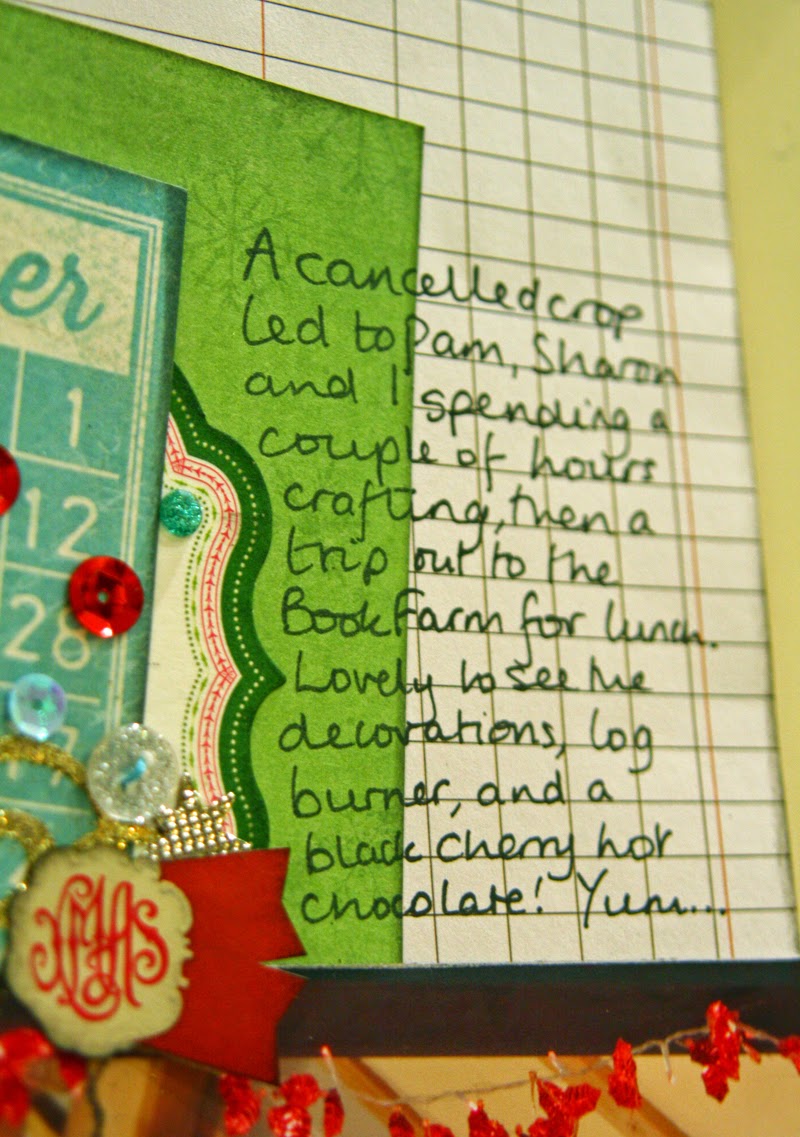 er
1
12
28
7
XMAS
A cancelled crop
led to Pam, Sharon
and I spending a
couple of hours
crafting, then a
trip out to the
Book Farm for lunch.
Lovely to see the
decorations, log
burner, and a
black cherry hot
chocolate! Yum...